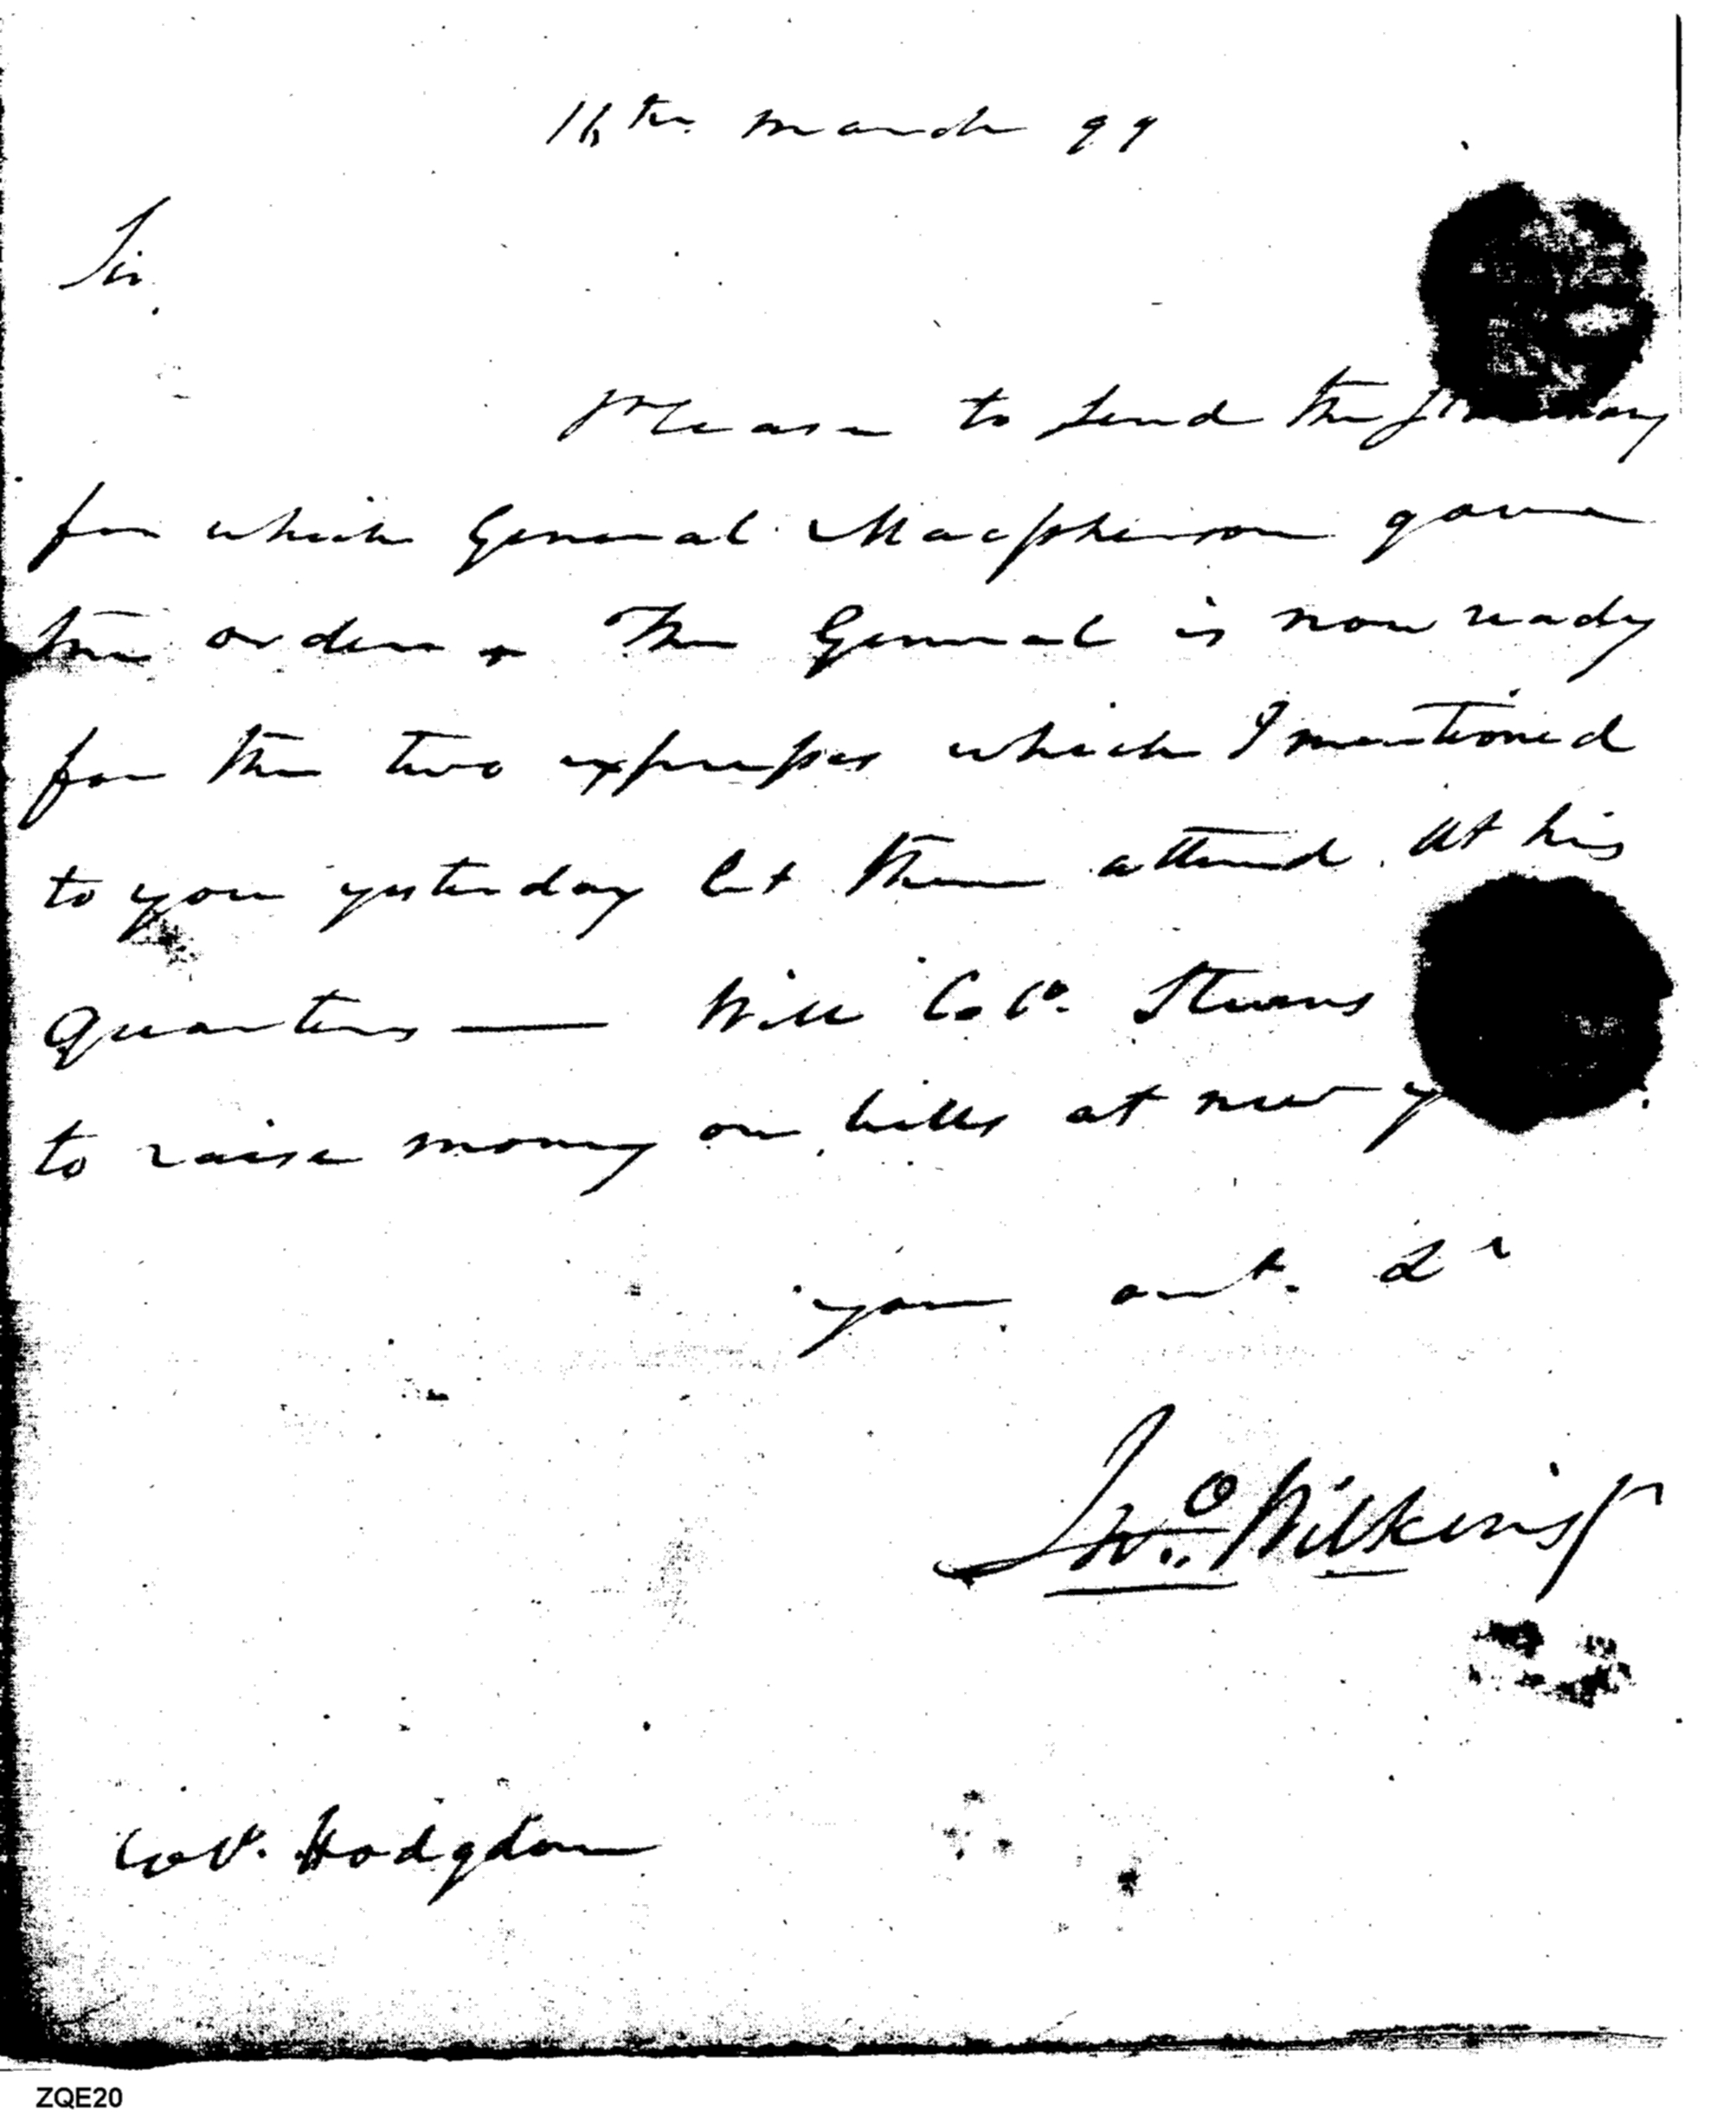 16th march 99
Sir,
Please to send the
for which General Macpherson gave
the orders + The General is now ready
for the two expresses which I mentioned
to you yesterday let them attend at his
Quarters — Will Col. Stevens
to raise money on bills at new
your
Jno. Wilkins Jr
Col. Hodgdon
ZQE20